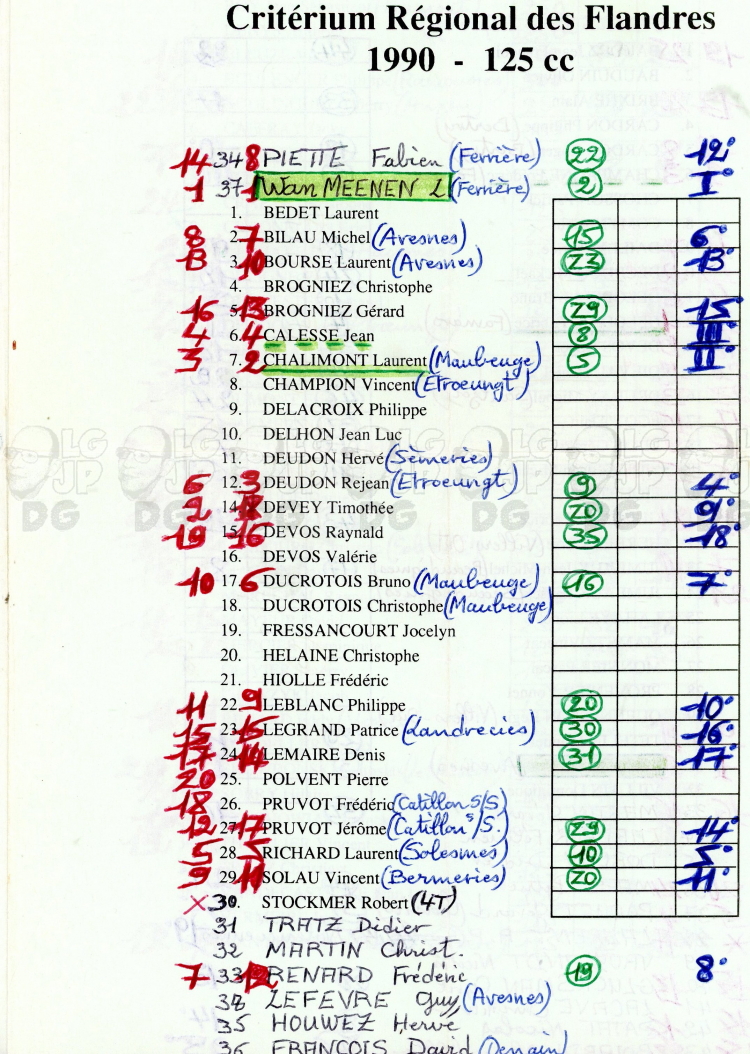 Critérium Régional des Flandres
1990 - 125 cc
14 34 8 PIETTE Fabien (Ferrière) 22 12°
1 37 1 Wan MEENEN L (Ferrière) 2 I°
1. BEDET Laurent
8 2. 7 BILAU Michel (Avesnes) 15 6°
13 3. 10 BOURSE Laurent (Avesnes) 23 13°
4. BROGNIEZ Christophe
16 5. 13 BROGNIEZ Gérard 29 15°
4 6. 4 CALESSE Jean 8 III°
3 7. 2 CHALIMONT Laurent (Maubeuge) 5 II°
8. CHAMPION Vincent (Etroeungt)
9. DELACROIX Philippe
10. DELHON Jean Luc
11. DEUDON Hervé (Sémeries)
6 12. 3 DEUDON Rejean (Etroeungt) 9 4°
2 14. DEVEY Timothée 20 9°
19 15. 16 DEVOS Raynald 35 18°
16. DEVOS Valérie
10 17. 6 DUCROTOIS Bruno (Maubeuge) 16 7°
18. DUCROTOIS Christophe (Maubeuge)
19. FRESSANCOURT Jocelyn
20. HELAINE Christophe
21. HIOLLE Frédéric
11 22. 9 LEBLANC Philippe 20 10°
15 23. 15 LEGRAND Patrice (Landrecies) 30 16°
17 24. 14 LEMAIRE Denis 31 17°
20 25. POLVENT Pierre
18 26. PRUVOT Frédéric (Catillon S/S)
12 27. 17 PRUVOT Jérôme (Catillon S/S.) 29 14°
5 28. 5 RICHARD Laurent (Solesmes) 10 5°
9 29. 11 SOLAU Vincent (Bermeries) 20 11°
X 30. STOCKMER Robert (4T)
31 TRATZ Didier
32 MARTIN Christ.
7 33 12 RENARD Frédéric 19 8°
34 LEFEVRE Guy (Avesnes)
35 HOUWEZ Hervé
36 FRANÇOIS David (Denain)
LG JP DG LG JP DG LG JP DG LG JP DG LG JP DG LG JP DG